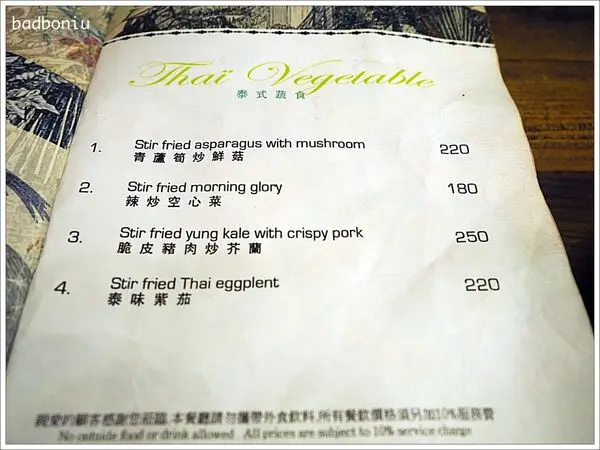 badboniu
Thaï Vegetable
泰式蔬食
1. Stir fried asparagus with mushroom 220
青蘆筍炒鮮菇
2. Stir fried morning glory 180
辣炒空心菜
3. Stir fried yung kale with crispy pork 250
脆皮豬肉炒芥蘭
4. Stir fried Thai eggplent 220
泰味紫茄
親愛的顧客感謝您蒞臨,本餐廳請勿攜帶外食飲料,所有餐飲價格須另加10%服務費
No outside food or drink allowed All prices are subject to 10% service charge